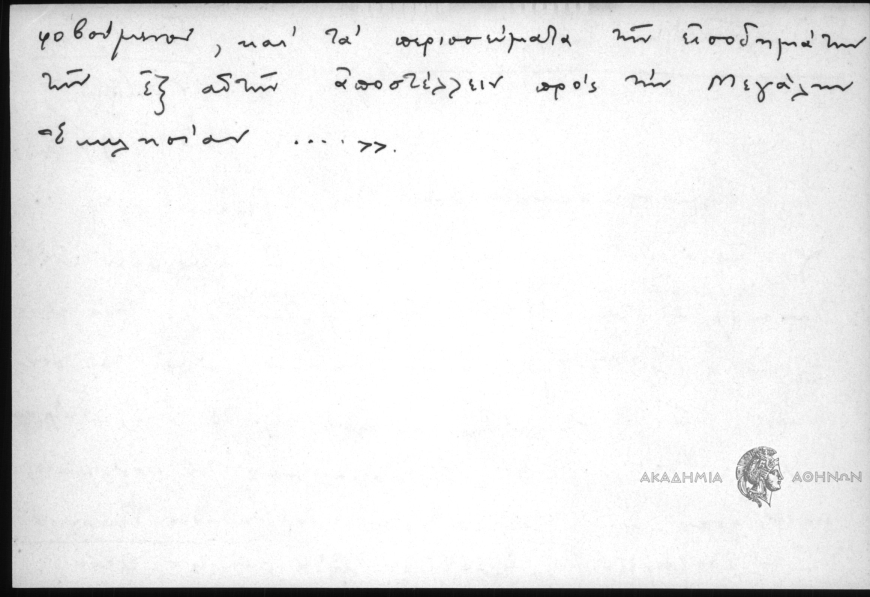 φοβούμενον, καὶ τὰ περισσεύματα τῶν εἰσοδημάτων
τῶν ἐξ αὐτῶν ἀποστέλλειν πρὸς τὴν Μεγάλην
Ἐκκλησίαν ....>>.
ΑΚΑΔΗΜΙΑ ΑΘΗΝΩΝ